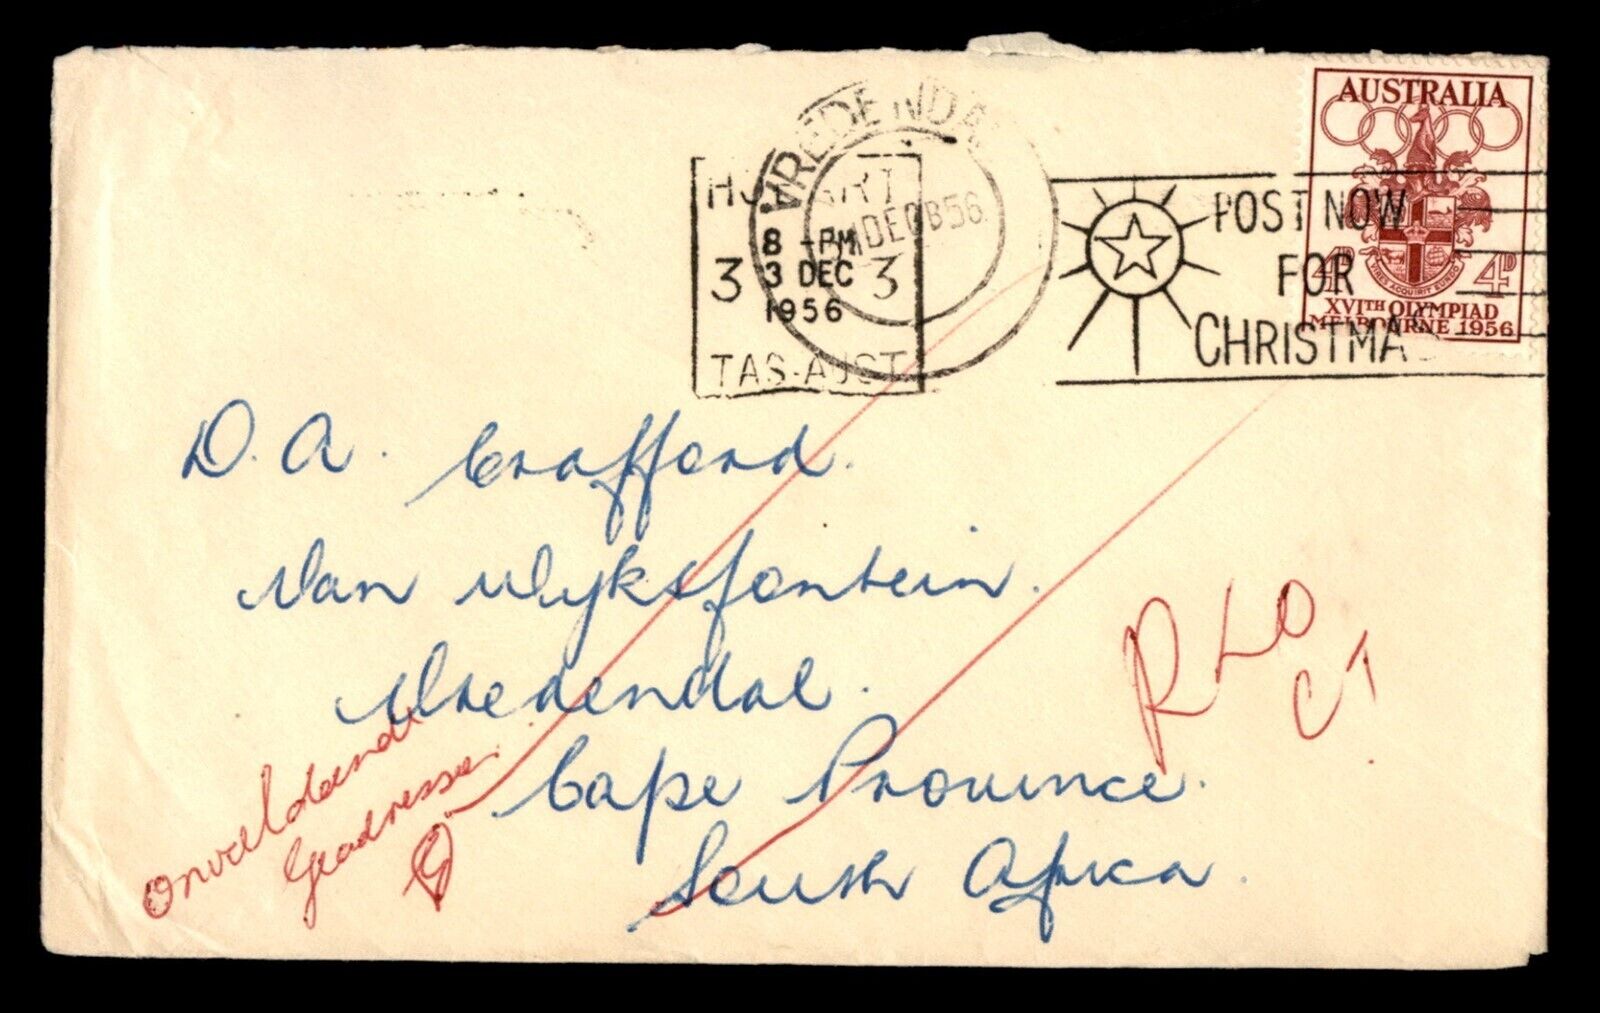 AUSTRALIA
4D 4D
VIRES ACQUIRIT EUNDO
XVITH OLYMPIAD
MELBOURNE 1956
VREDENDAL
DEC 56
HOBART
8 -PM
3 3 DEC 3
1956
TAS-AUST
POST NOW
FOR
CHRISTMAS
D. A. Crafford.
Van Wyksfontein.
Vredendal.
Cape Province.
South Africa.
RLO
CT
Onvoldoende
Geadresseer